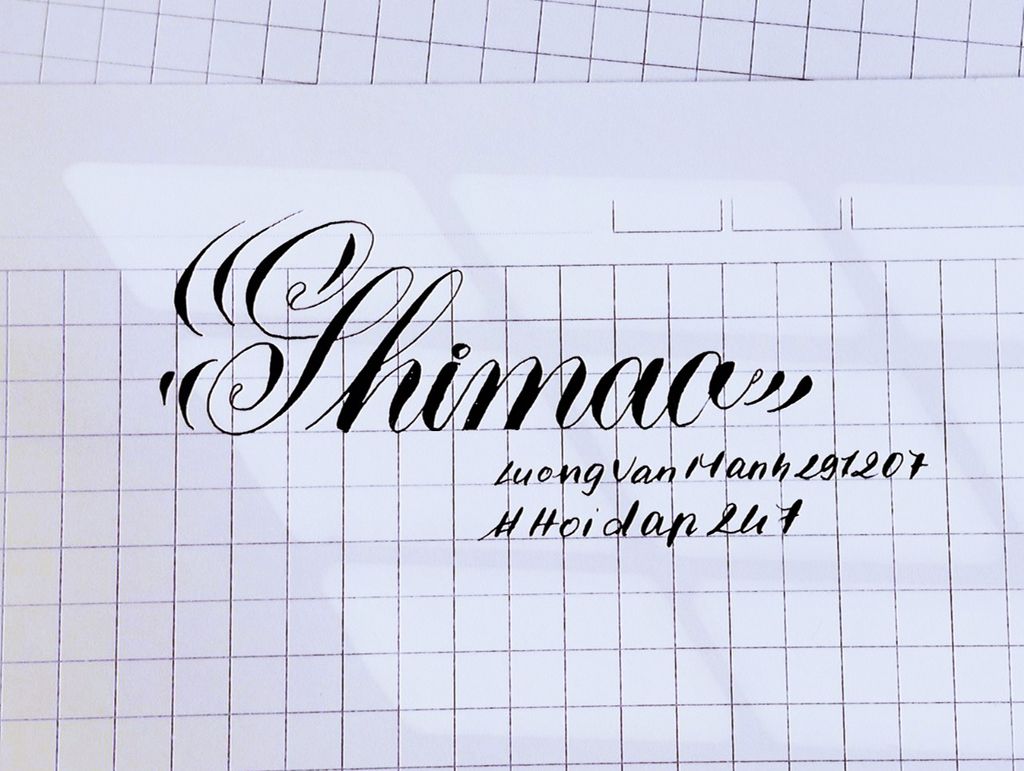 Shimao
LuongVanManh291207
#Hoidap247